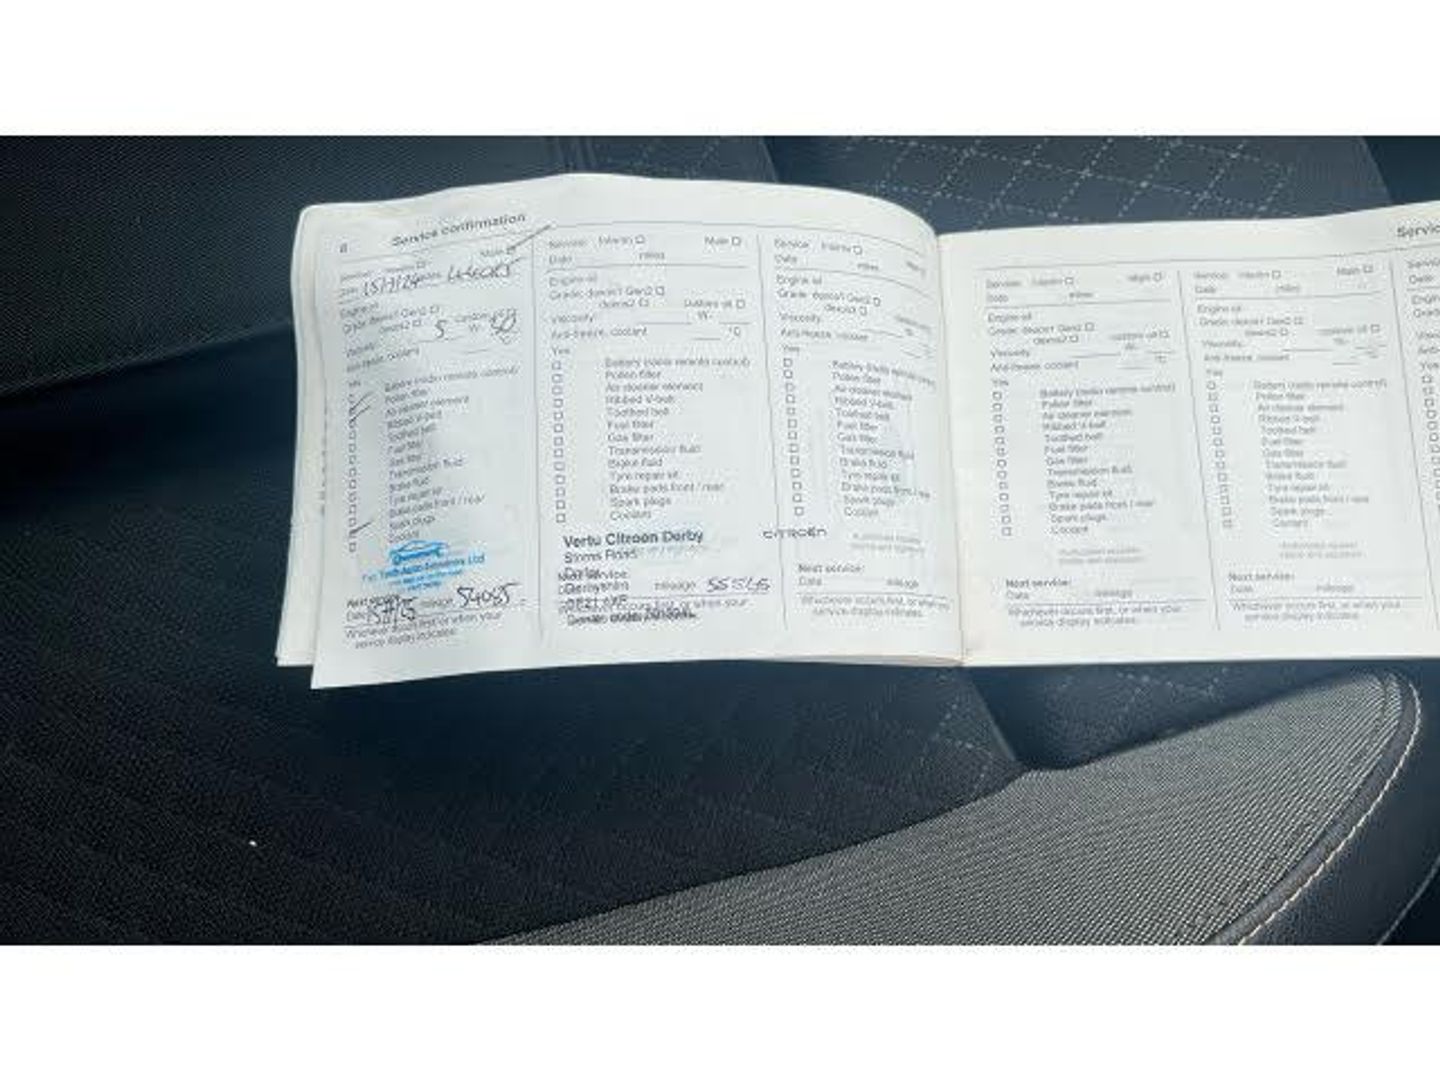 8 Service confirmation
Service: Interim Main
Date 15/7/24 miles 44085
Engine oil
Grade: dexos1 Gen2
dexos2 custom oil
Viscosity 5 W-
Anti-freeze, coolant
Yes
Battery (radio remote control)
Pollen filter
Air cleaner element
Ribbed V-belt
Toothed belt
Fuel filter
Gas filter
Transmission fluid
Brake fluid
Tyre repair kit
Brake pads front / rear
Spark plugs
Coolant
Next service:
Date mileage 54085
Whichever occurs first, or when your
service display indicates.
Service: Interim Main
Date miles
Engine oil
Grade: dexos1 Gen2
dexos2 custom oil
Viscosity W-
Anti-freeze, coolant °C
Yes
Battery (radio remote control)
Pollen filter
Air cleaner element
Ribbed V-belt
Toothed belt
Fuel filter
Gas filter
Transmission fluid
Brake fluid
Tyre repair kit
Brake pads front / rear
Spark plugs
Coolant
Vertu Citroen Derby
CITROËN
Road
Derby
Derbyshire mileage
DE21 or when your
Service: Interim Main
Date miles
Engine oil
Grade: dexos1 Gen2
dexos2 custom oil
Viscosity
Anti-freeze, coolant
Yes
Battery (radio remote control)
Pollen filter
Air cleaner element
Ribbed V-belt
Toothed belt
Fuel filter
Gas filter
Transmission fluid
Brake fluid
Tyre repair kit
Brake pads front / rear
Spark plugs
Coolant
Next service:
Date mileage
Whichever occurs first, or when you
service display indicates.
Servic
Service: Interim Main
Date miles
Engine oil
Grade: dexos1 Gen2
dexos2 custom oil
Viscosity W-
Anti-freeze, coolant °C
Yes
Battery (radio remote control)
Pollen filter
Air cleaner element
Ribbed V-belt
Toothed belt
Fuel filter
Gas filter
Transmission fluid
Brake fluid
Tyre repair kit
Brake pads front / rear
Spark plugs
Coolant
Next service:
Date mileage
Whichever occurs first, or when your
service display indicates.
Service: Interim Main
Date miles
Engine oil
Grade: dexos1 Gen2
dexos2 custom oil
Viscosity W-
Anti-freeze, coolant °C
Yes
Battery (radio remote control)
Pollen filter
Air cleaner element
Ribbed V-belt
Toothed belt
Fuel filter
Gas filter
Transmission fluid
Brake fluid
Tyre repair kit
Brake pads front / rear
Spark plugs
Coolant
Next service:
Date mileage
Whichever occurs first, or when your
service display indicates.